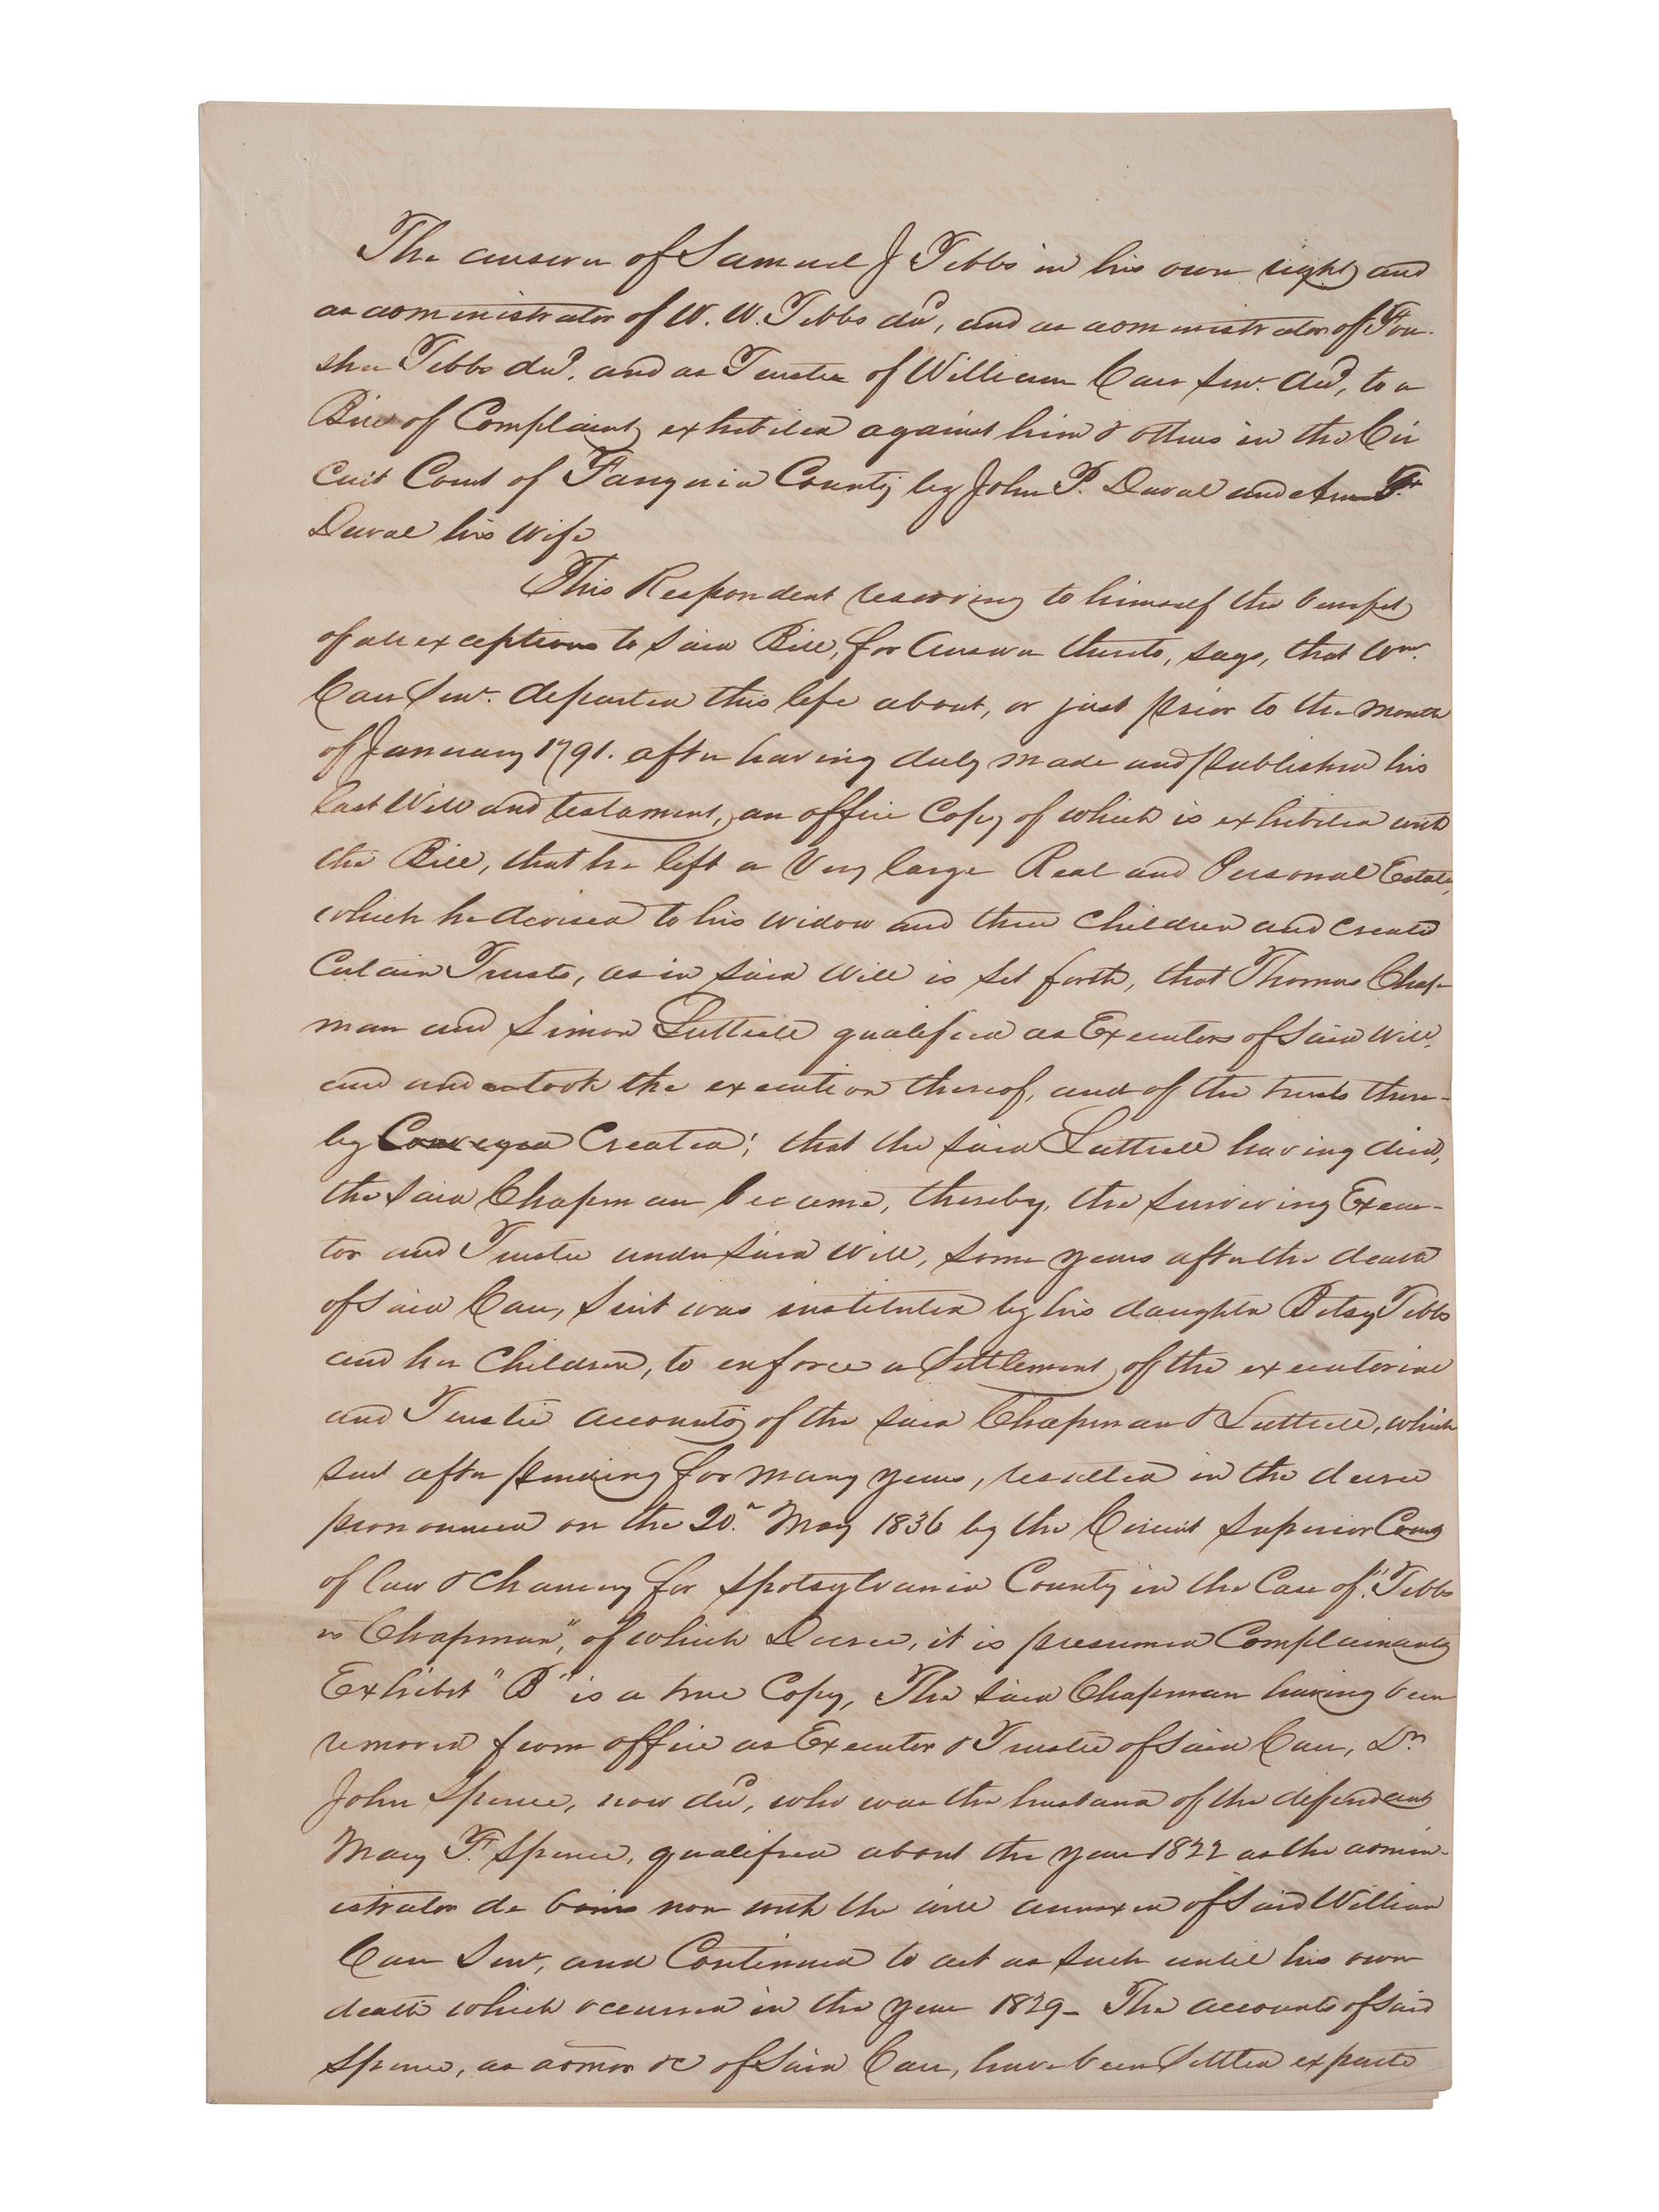 The answer of Samuel J Tebbs in his own right and
as administrator of W. W. Tebbs decd, and as administrator of Fou-
shee Tebbs decd. and as Trustee of William Carr Senr. decd, to a
Bill of Complaint exhibited against him & others in the Cir
cuit Court of Fauquier County by John P. Duval and Ann F.
Duval his Wife
This Respondent reserving to himself the benefit
of all exceptions to said Bill, for Answer thereto, says, that Wm.
Carr Senr. departed this life about, or just prior to the month
of January 1791. after having duly made and published his
last Will and testament, an office Copy of which is exhibited with
the Bill, that he left a Very large Real and Personal Estate,
which he devised to his widow and three Children and created
Certain Trusts, as in said Will is set forth, that Thomas Chap-
man and Simon Luttrell qualified as Executors of said Will,
and undertook the execution thereof, and of the trusts there-
by Conveyed Created; that the said Luttrell having died,
the said Chapman became, thereby, the surviving Execu-
tor and Trustee under said Will, some years after the death
of said Carr, Suit was instituted by his daughter Betsy Tebbs
and her Children, to enforce a Settlement of the executorial
and Trustee accounts of the said Chapman & Luttrell, which
suit after pending for many years, resulted in the decree
pronounced on the 20. May 1836 by the Circuit Superior Court
of law & chancery for Spotsylvania County in the Case of "Tebbs
vs Chapman", of which Decree, it is presumed Complainants
Exhibit "B" is a true Copy, The said Chapman having been
removed from office as Executor & Trustee of said Carr, Dr.
John Spence, now decd, who was the husband of the defendant
Mary F. Spence, qualified about the year 1822 as the admin-
istrator de bonis non with the will annexed of said William
Carr Senr, and Continued to act as such until his own
death which occurred in the year 1829_ The accounts of said
Spence, as admor &c of said Carr, have been settled exparte